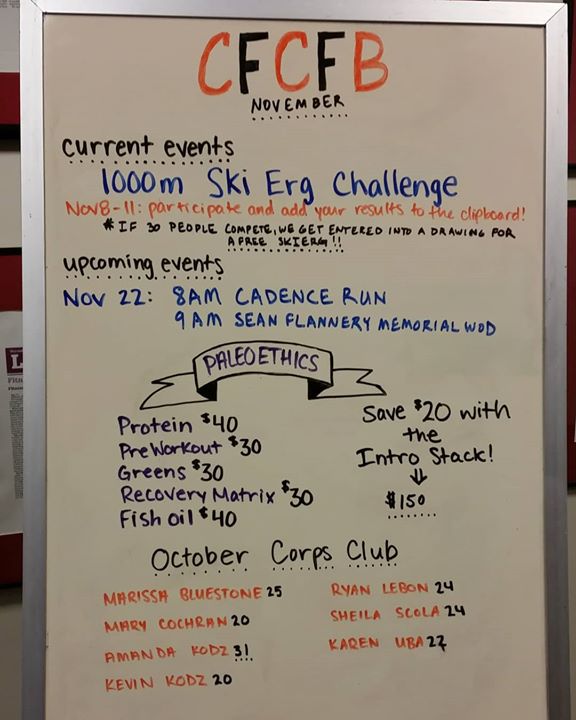 CFCFB
NOVEMBER
current events
1000m Ski Erg Challenge
Nov 8-11: participate and add your results to the clipboard!
* IF 30 PEOPLE COMPETE, WE GET ENTERED INTO A DRAWING FOR
A FREE SKIERG!!
upcoming events
Nov 22: 8AM CADENCE RUN
9AM SEAN FLANNERY MEMORIAL WOD
PALEOETHICS
Protein $40
PreWorkout $30
Greens $30
Recovery Matrix $30
Fish oil $40
Save $20 with
the
Intro Stack!
↓
$150
October Corps Club
MARISSA BLUESTONE 25
MARY COCHRAN 20
AMANDA KODZ 31
KEVIN KODZ 20
RYAN LEBON 24
SHEILA SCOLA 24
KAREN UBA 22